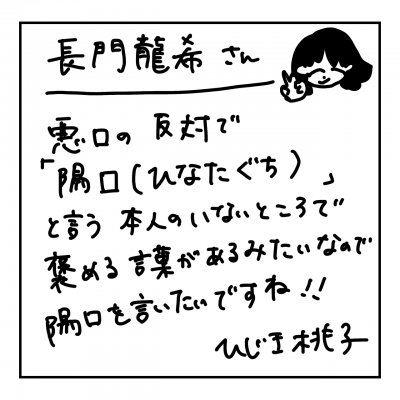 長門龍希さん
悪口の反対で
「陽口(ひなたぐち)」
と言う本人のいないところで
褒める言葉があるみたいなので
陽口を言いたいですね!!
ひじ王桃子